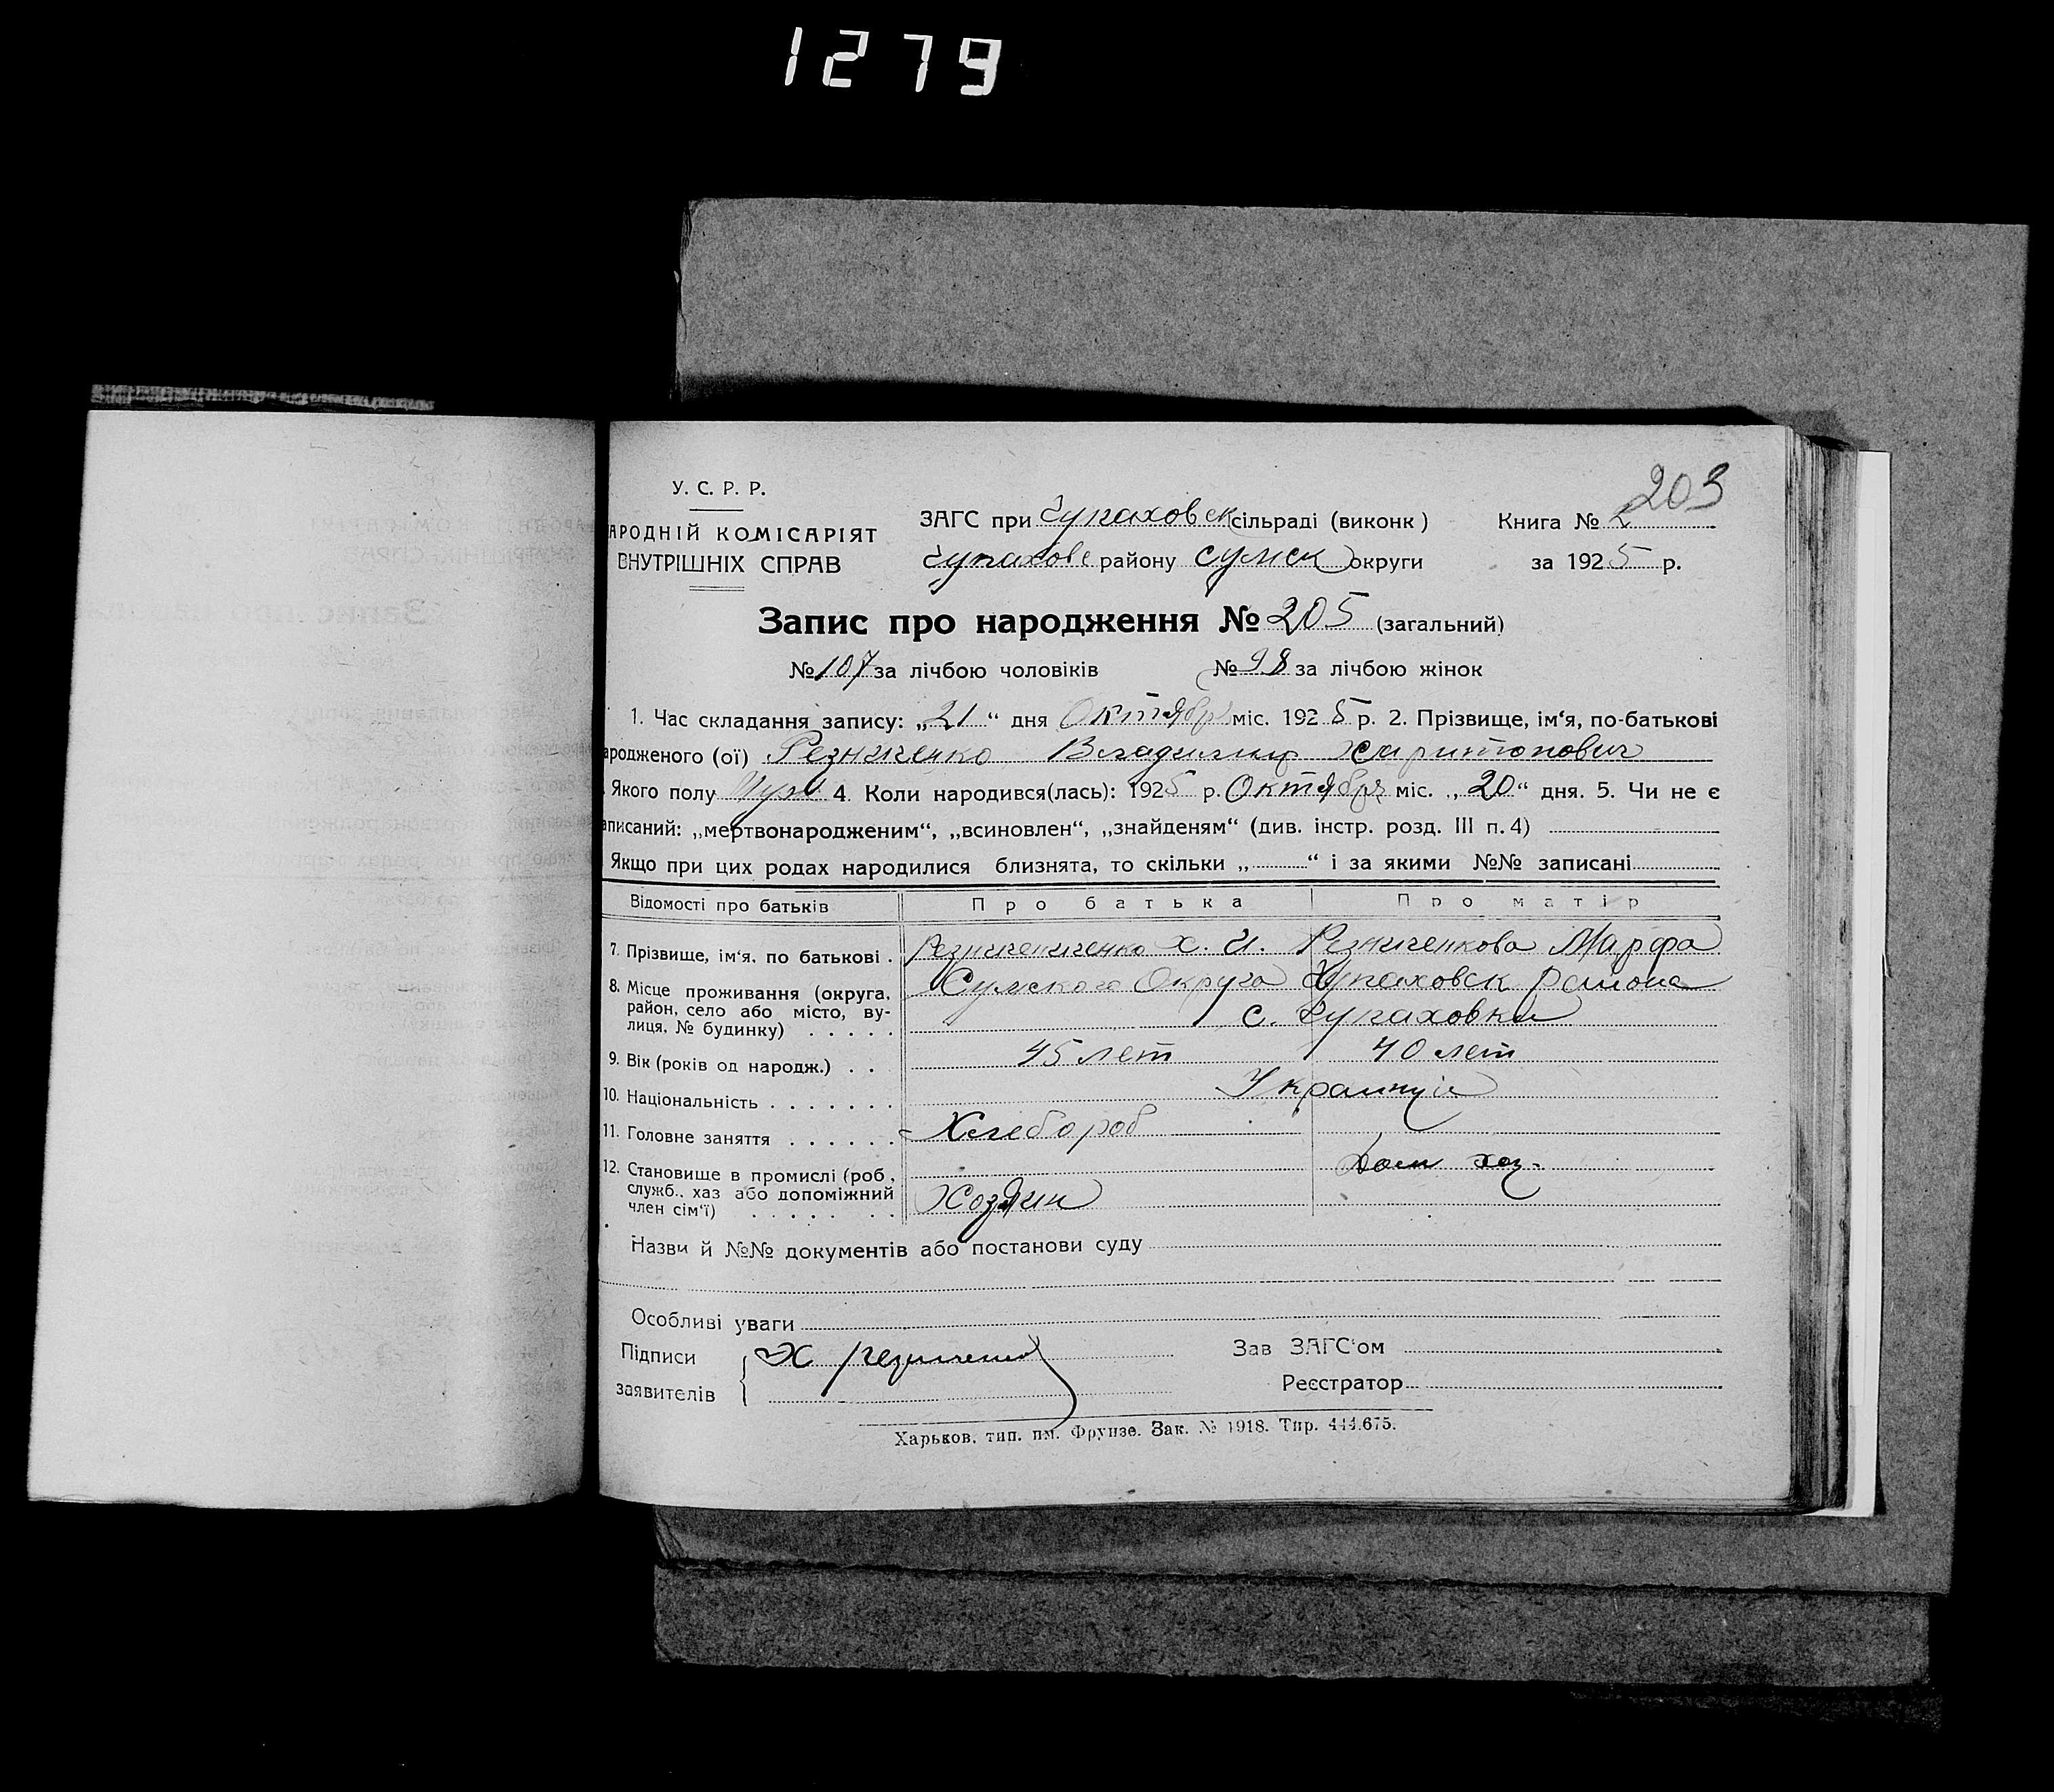 1279
203
У. С. Р. Р.
АРОДНІЙ КОМІСАРІЯТ
ВНУТРІШНІХ СПРАВ
ЗАГС при Чупаховск сільраді (виконк)
Книга № 2
Чупахове району Сумск округи
за 1925 р.
Запис про народження № 205 (загальний)
№ 107 за лічбою чоловіків № 98 за лічбою жінок
1. Час складання запису: „21“ дня Октября міс. 1925 р. 2. Прізвище, ім‘я, по-батькові
ародженого (ої) Резниченко Владимир Харитонович
Якого полу Муж 4. Коли народився(лась): 1925 р. Октября міс. „20“ дня. 5. Чи не є
аписаний: „мертвонародженим“, „всиновлен“, „знайденям“ (див. інстр. розд. III п. 4)
Якщо при цих родах народилися близнята, то скільки „ “ і за якими №№ записані
Відомості про батьків Про батька Про матір
7. Прізвище, ім‘я, по батькові . Х. И. Резниченкова Марфа
8. Місце проживання (округа, район, село або місто, вулиця, № будинку) Сумского Округа Чупаховск района
с. Чупаховки
9. Вік (років од народж.) . . 45 лет 40 лет
10. Національність . . . . . . . Украинци
11. Головне заняття . . . . . . Хлебороб
12. Становище в промислі (роб., служб., хаз або допоміжний член сім‘ї) . . . . . . . Хозяин Дом хоз.
Назви й №№ документів або постанови суду
Особливі уваги
Підписи
заявителів
Х Резниченко
Зав ЗАГС‘ом
Реєстратор
Харьков, тип. им. Фрунзе. Зак. № 1918. Тир. 444.675.